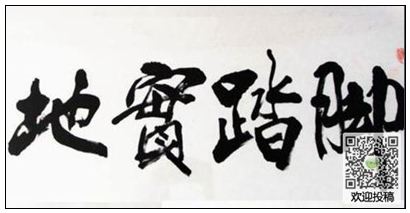 脚踏實地
欢迎投稿